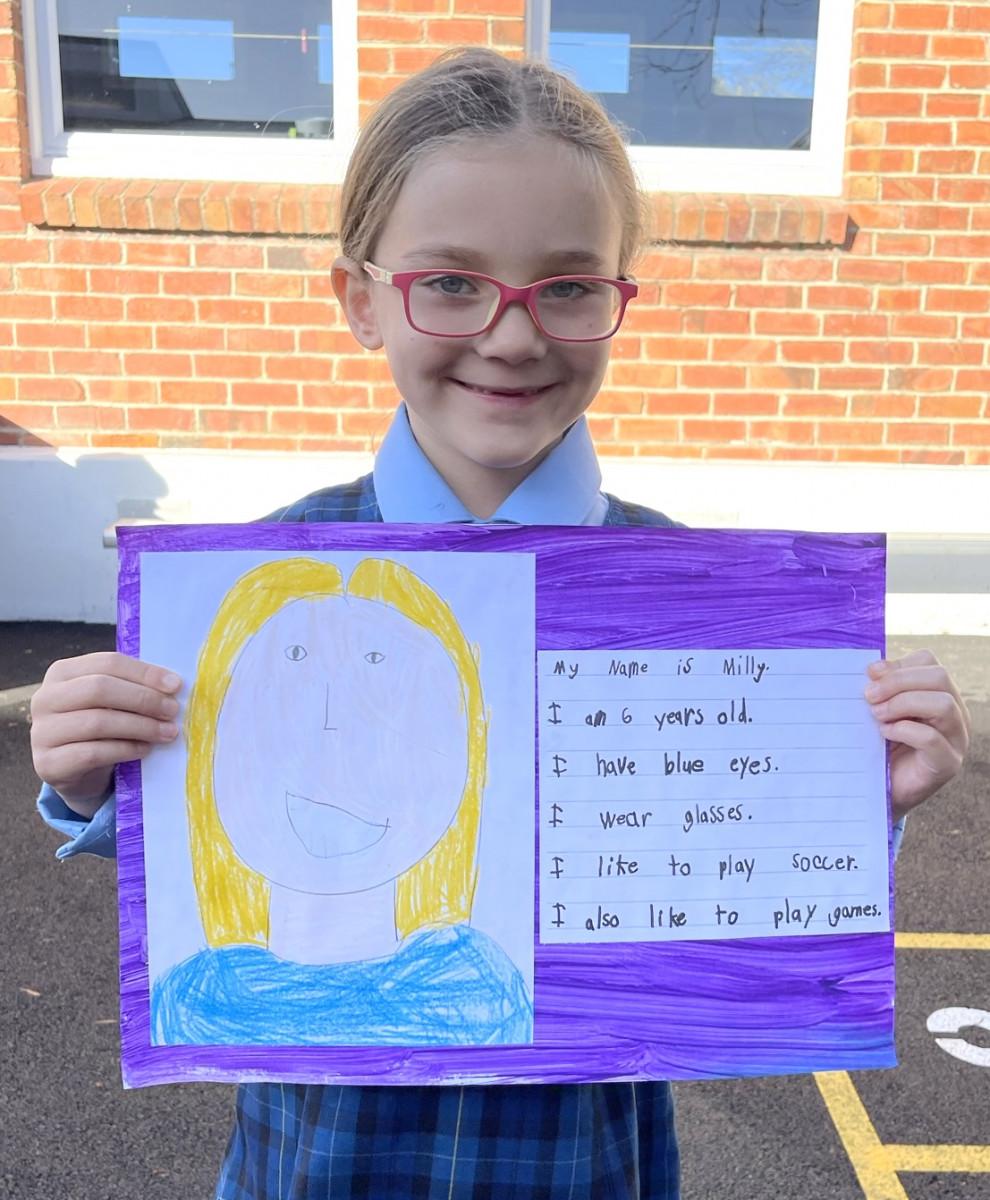 My Name is Milly.
I am 6 years old.
I have blue eyes.
I wear glasses.
I like to play soccer.
I also like to play games.